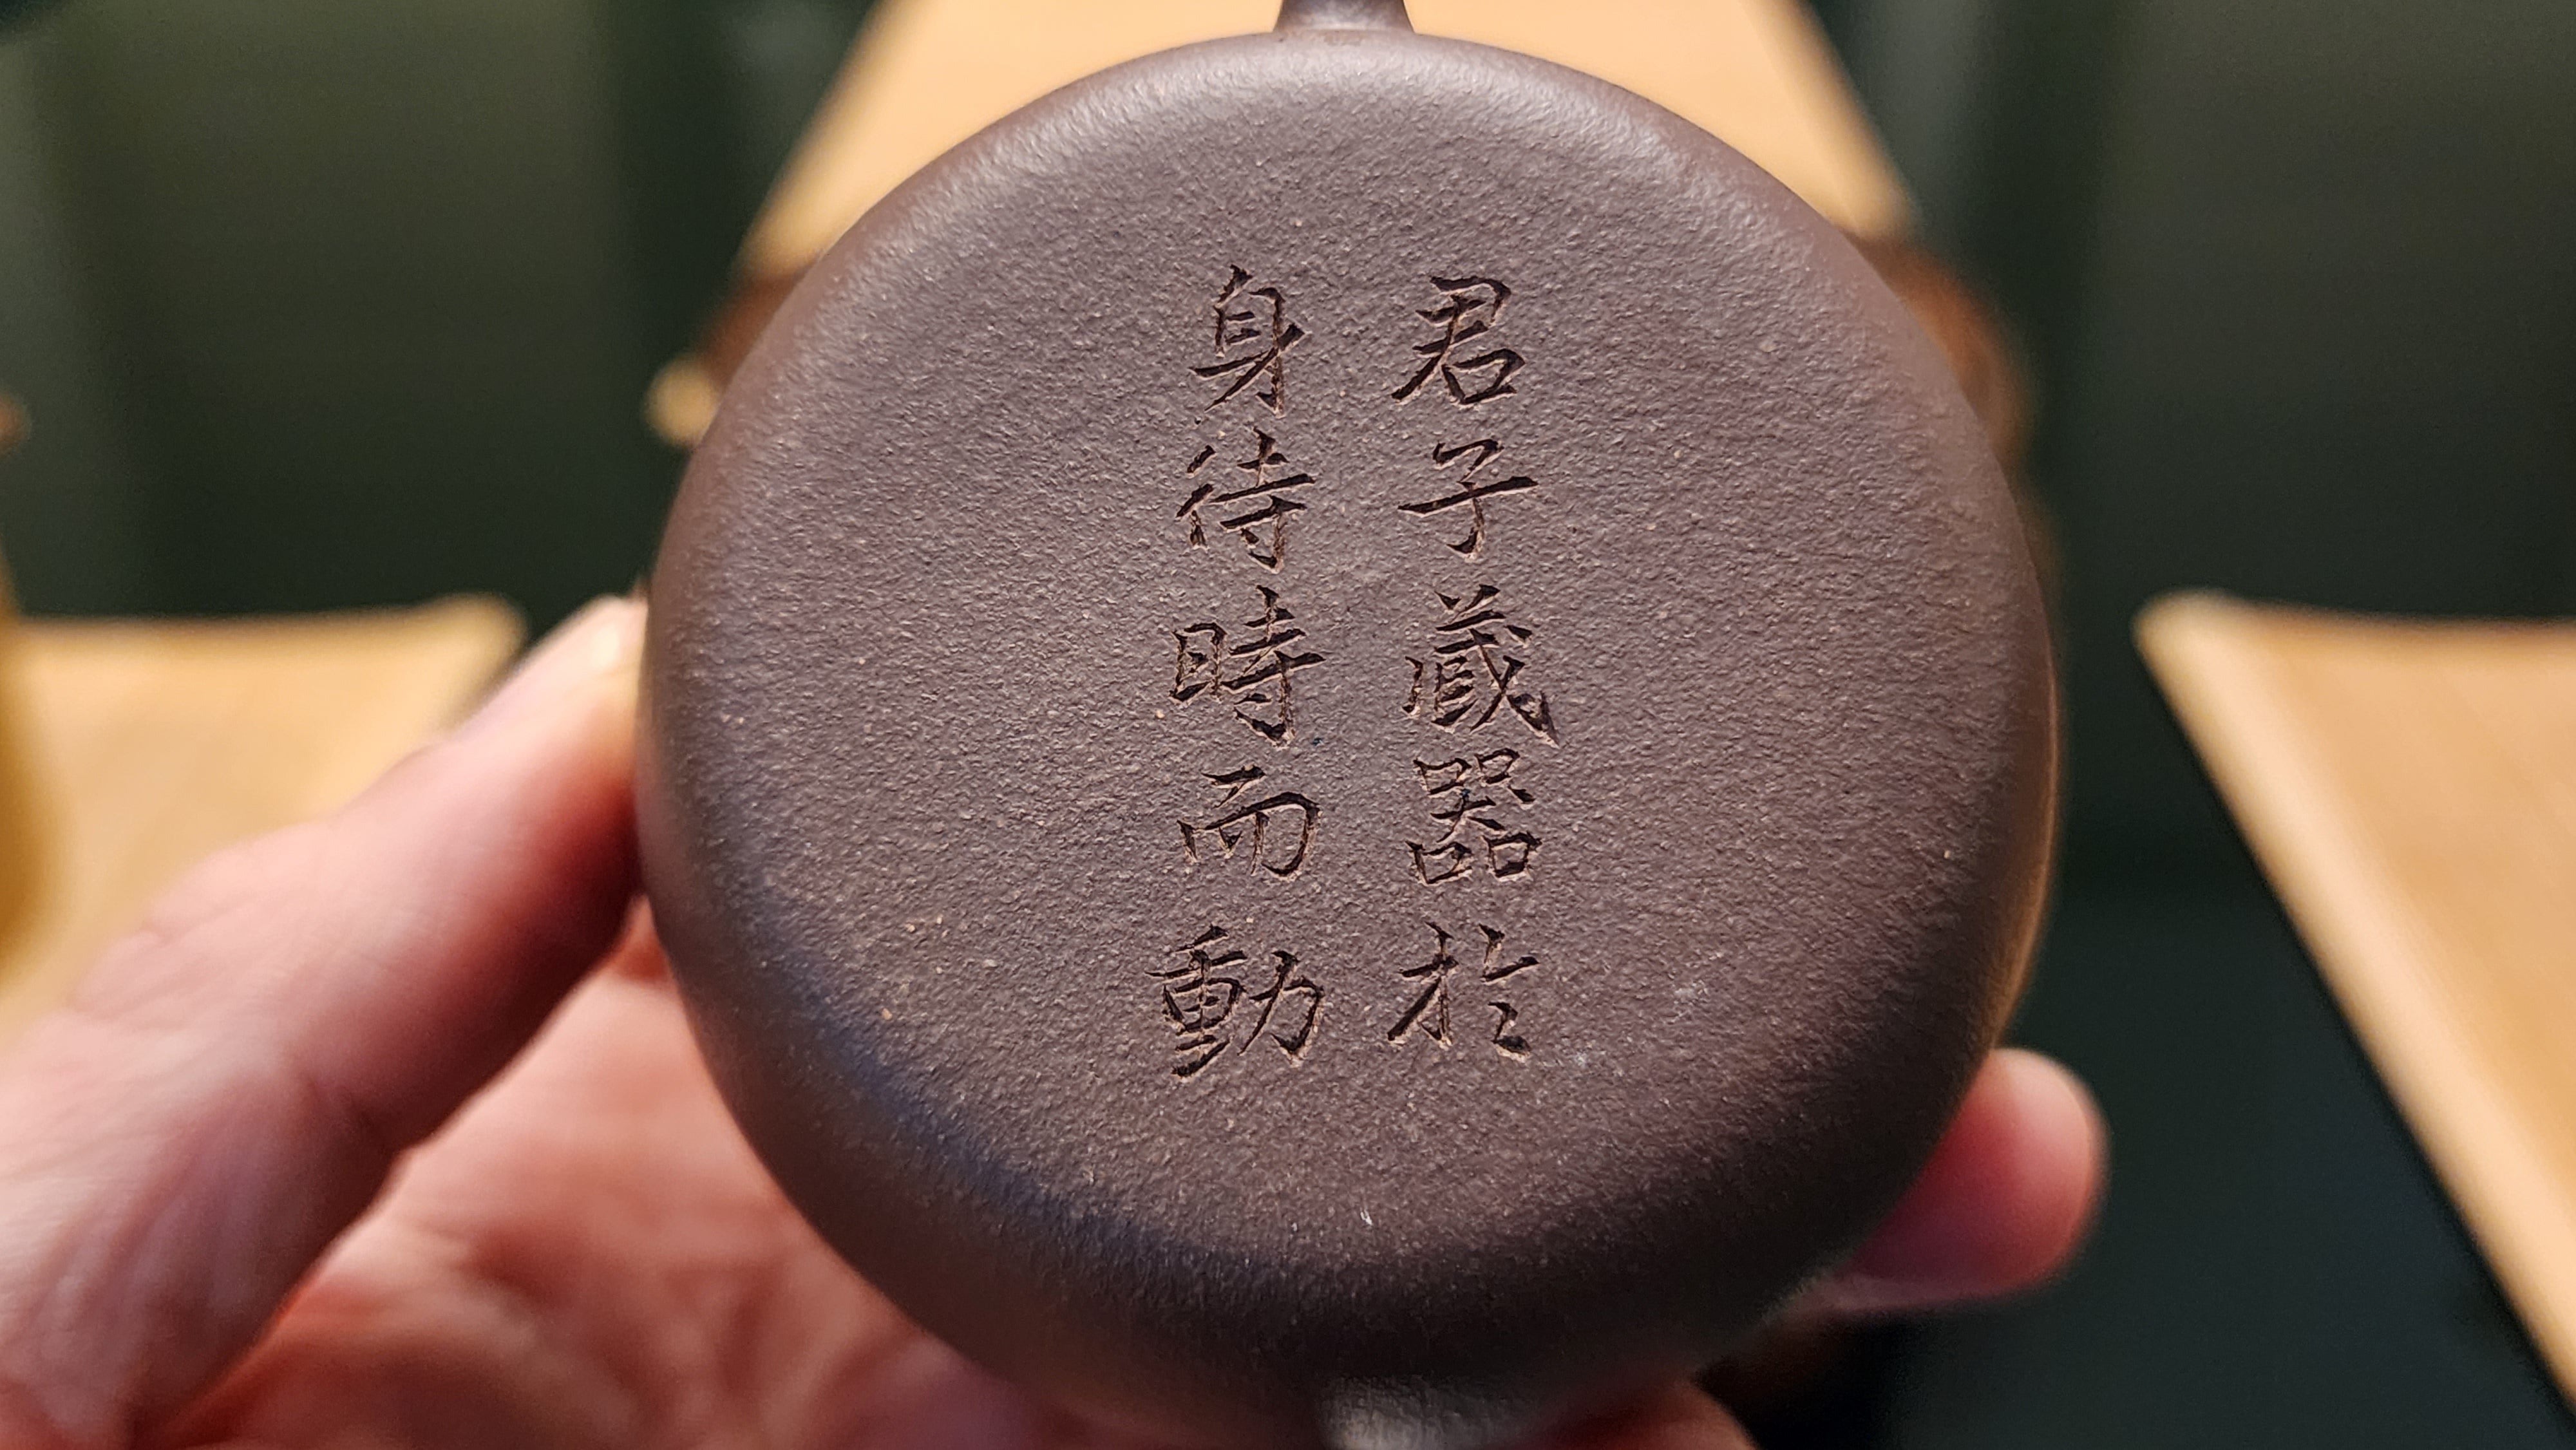 君子蔵器於
身待時而動